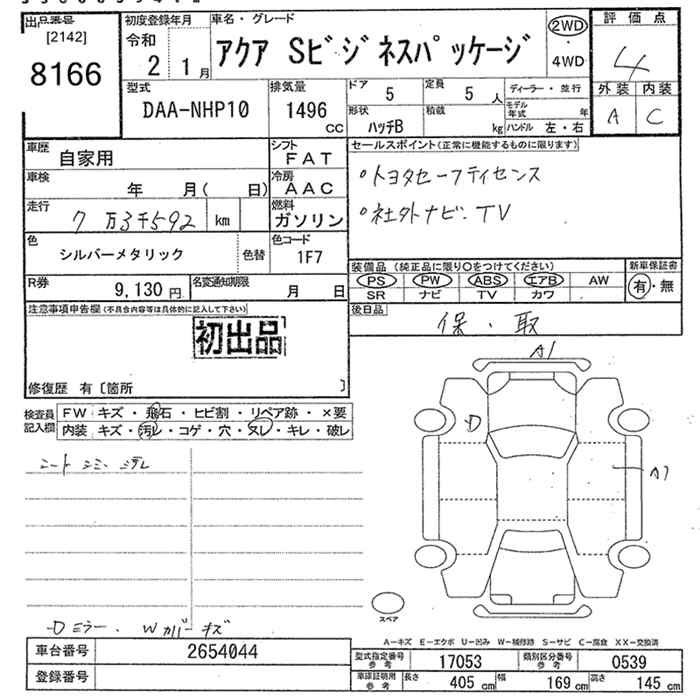 出品番号
[2142]
8166
初度登録年月
令和
2 1月
車名・グレード
アクア Sビジネスパッケージ
2WD
・
4WD
評価点
4
外装 内装
A C
型式
DAA-NHP10
排気量
1496
CC
ドア
5
定員
5人
形状
ハッチB
積載
kg
ディーラー・並行
モデル年式 年
ハンドル 左・右
車歴
自家用
シフト
FAT
車検
年 月( 日)
冷房
AAC
走行
7万3千592 km
燃料
ガソリン
色
シルバーメタリック
色替
色コード
1F7
R券
9,130円
名変通知期限
月 日
セールスポイント(正常に機能するものに限ります)
○トヨタセーフティセンス
○社外ナビ.TV
装備品 (純正品に限り○をつけてください)
PS PW ABS エアB AW
SR ナビ TV カワ
新車保証書
有・無
後日品
保・取
注意事項申告欄(不具合内容等は具体的に記入して下さい)
初出品
修復歴 有〔箇所 〕
検査員記入欄
FW キズ・飛石・ヒビ割・リペア跡・×要
内装 キズ・汚レ・コゲ・穴・スレ・キレ・破レ
シート シミ
A1
D
A1
スペア
Dミラー. Wカバー キズ
A-キズ E-エクボ U-凹み W-補修跡 S-サビ C-腐食 XX-交換済
車台番号
2654044
登録番号
型式指定番号 参考
17053
類別区分番号 参考
0539
車庫証明用 参考
長さ 405 cm
幅 169 cm
高さ 145 cm